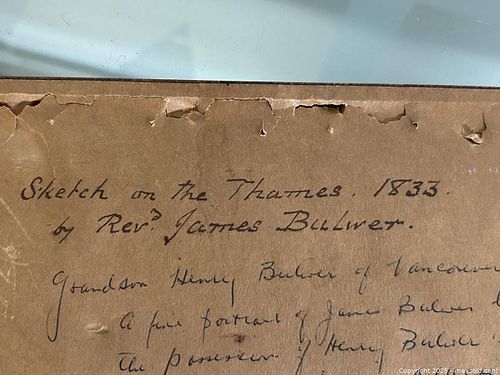 Sketch on the Thames. 1833.
by Revᴰ James Bulwer.
Grandson Henry Bulwer of Vancouver
A fine portrait of James Bulwer
the possession of Henry Bulwer
Copyright 2025